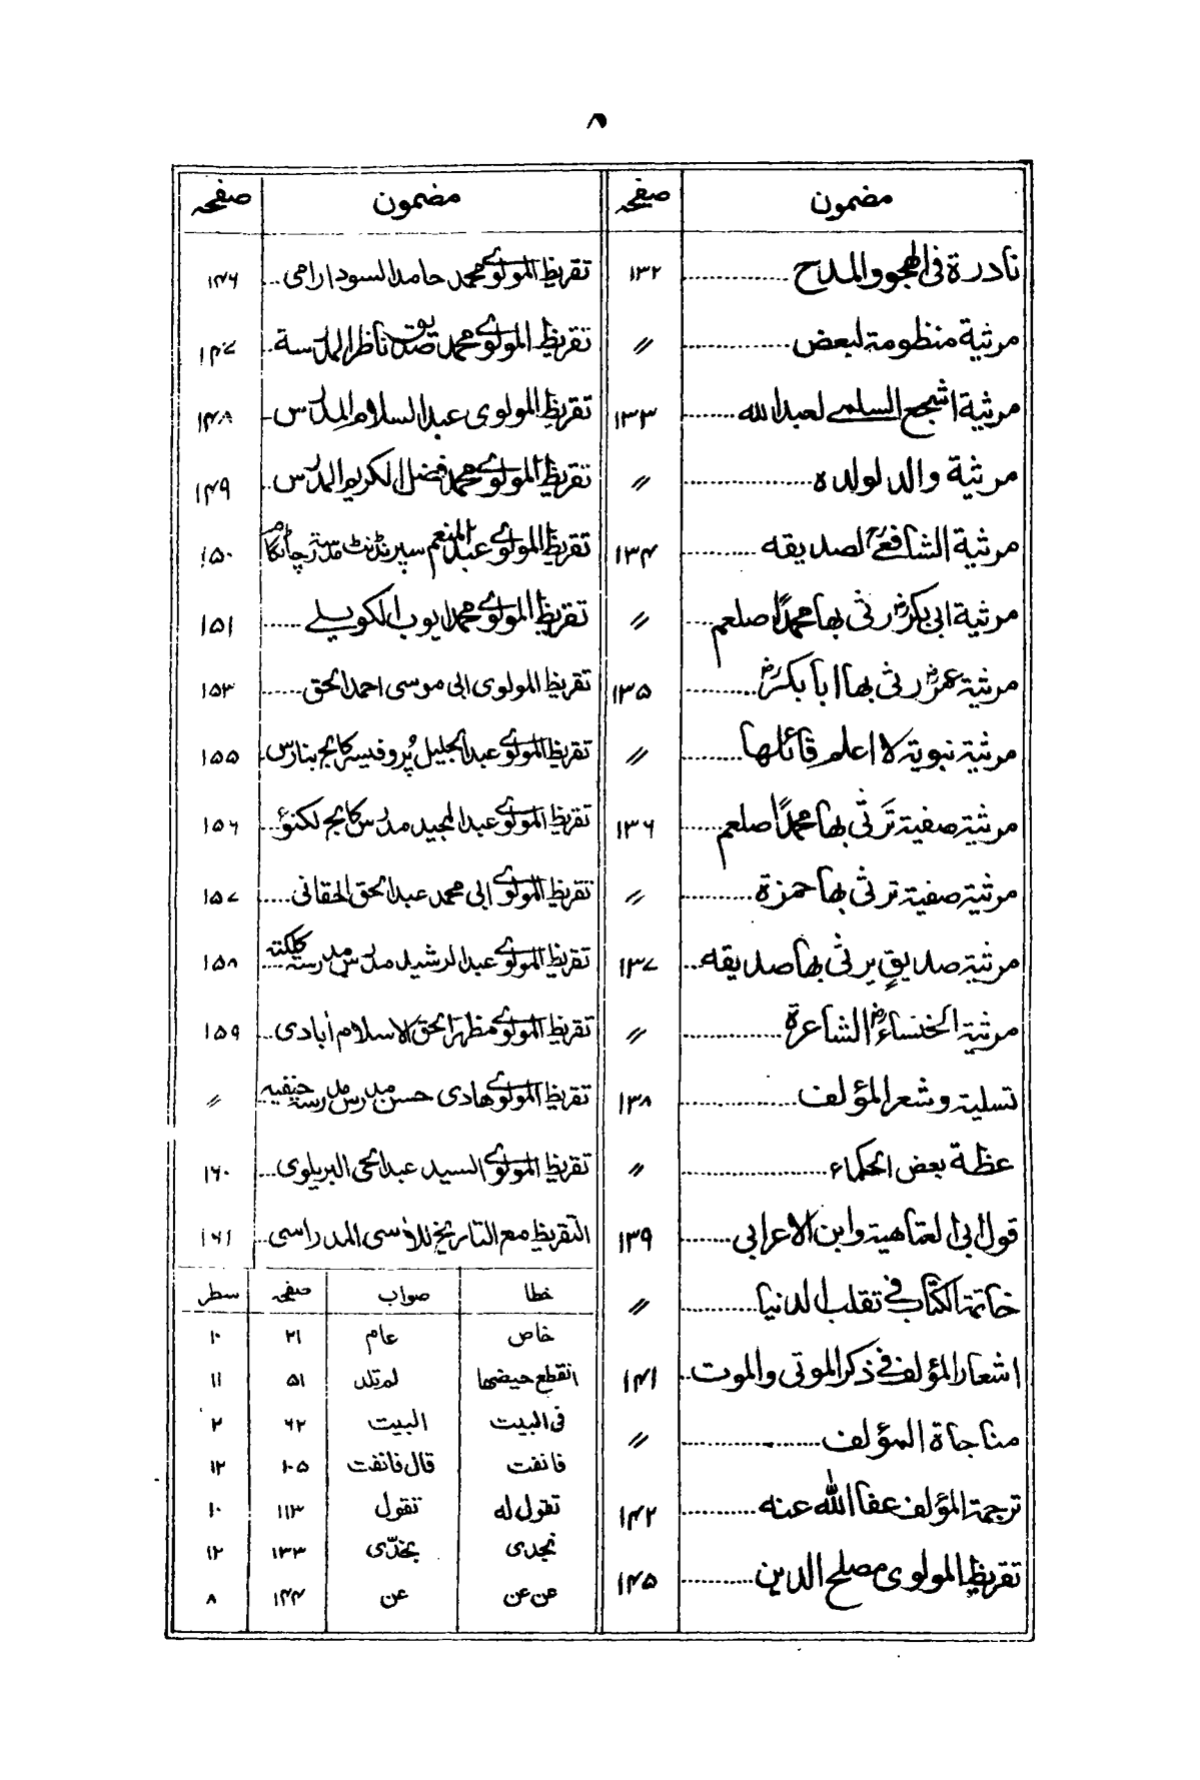 ۸
مضمون صفحہ
نادرۃ فی الھجو والمدح ۱۳۲
مرثیة منظومة لبعض 〃
مرثیة اشجع السلمی لعبدالله ۱۳۳
مرثیة والد لولده 〃
مرثیة الشافعی لصدیقه ۱۳۴
مرثیة ابی بکرؓ رثی بها محمدًا صلعم 〃
مرثیة عمرؓ رثی بها ابا بکرؓ ۱۳۵
مرثیة نبویة لا اعلم قائلها 〃
مرثیة صفیة تَرثی بها محمدًا صلعم ۱۳۶
مرثیة صفیة ترثی بها حمزة 〃
مرثیة صدیقٍ یرثی بها صدیقه ۱۳۷
مرثیة الخنساءؓ الشاعرة 〃
تسلیة وشعر المؤلف ۱۳۸
عظة بعض الحکماء 〃
قول ابی العتاهیة وابن الاعرابی ۱۳۹
خاتمة الکتاب فی تقلب الدنیا 〃
اشعار المؤلف فی ذکر الموتی والموت ۱۴۱
مناجاة المؤلف 〃
ترجمة المؤلف عفا الله عنه ۱۴۲
تقریظ المولوی مصلح الدین ۱۴۵
مضمون صفحہ
تقریظ المولوی محمد حامد السودارامی ۱۴۶
تقریظ المولوی محمد صدیق ناظر المدرسة ۱۴۷
تقریظ المولوی عبد السلام المدرس ۱۴۸
تقریظ المولوی محمد فضل الکریم المدرس ۱۴۹
تقریظ المولوی عبد المنعم سپرنڈنٹ مدرسہ چاٹگام ۱۵۰
تقریظ المولوی محمد ایوب الکویلی ۱۵۱
تقریظ المولوی ابی موسی احمد الحق ۱۵۳
تقریظ المولوی عبد الجلیل پُروفیسر کالج بنارس ۱۵۵
تقریظ المولوی عبد المجید مدرس کالج لکنؤ ۱۵۶
تقریظ المولوی ابی محمد عبد الحق الحقانی ۱۵۷
تقریظ المولوی عبد الرشید مدرس مدرسہ کلکتہ ۱۵۸
تقریظ المولوی مظهر الحق الاسلام أبادی ۱۵۹
تقریظ المولوی هادی حسن مدرس مدرسہ حنیفیہ 〃
تقریظ المولوی السید عبد الحی البریلوی ۱۶۰
التقریظ مع التاریخ للأسی المدراسی ۱۶۱
خطا صواب صفحہ سطر
خاص عام ۲۱ ۱۰
انقطع حیضها لم تلد ۵۱ ۱۱
فی البیت البیت ۶۲ ۲
فانفت قال فانفت ۱۰۵ ۱۲
تقول له تقول ۱۱۳ ۱۰
نجدی بخدّی ۱۳۳ ۱۲
عن عن عن ۱۴۴ ۸